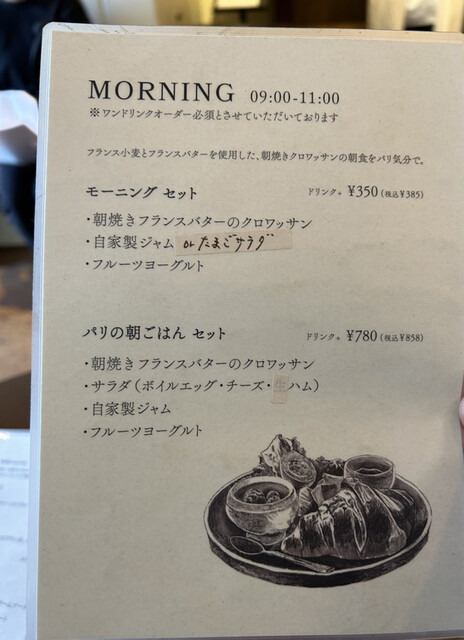 MORNING 09:00-11:00
※ワンドリンクオーダー必須とさせていただいております
フランス小麦とフランスバターを使用した、朝焼きクロワッサンの朝食をパリ気分で。
モーニング セット ドリンク+ ¥350(税込¥385)
・朝焼きフランスバターのクロワッサン
・自家製ジャム orたまごサラダ
・フルーツヨーグルト
パリの朝ごはん セット ドリンク+ ¥780(税込¥858)
・朝焼きフランスバターのクロワッサン
・サラダ(ボイルエッグ・チーズ・生ハム)
・自家製ジャム
・フルーツヨーグルト